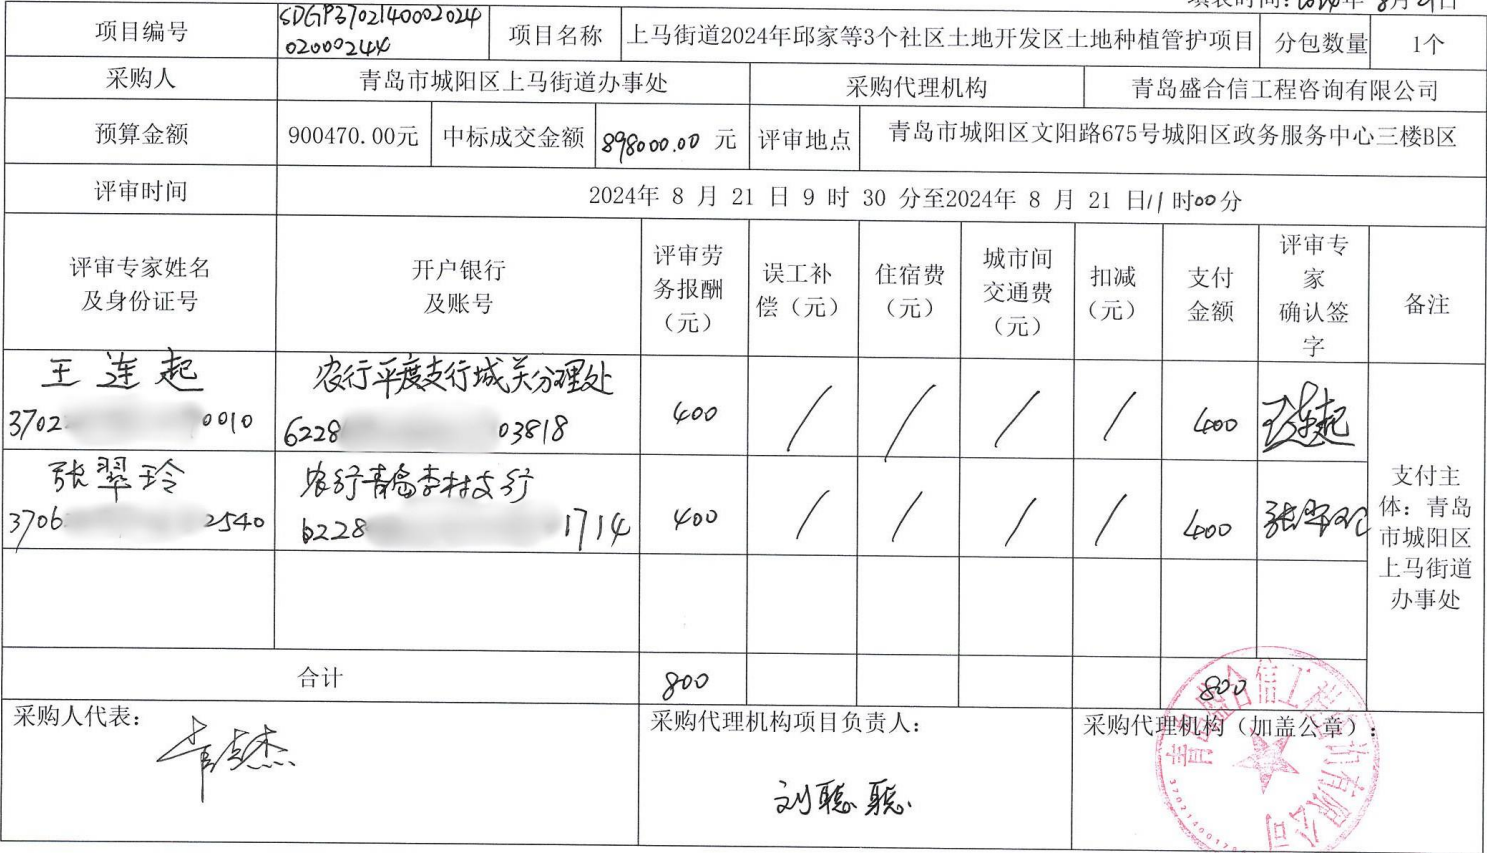 填表时间：2024年 8月21日
项目编号
SDGP3702140002024
02000244
项目名称
上马街道2024年邱家等3个社区土地开发区土地种植管护项目
分包数量
1个
采购人
青岛市城阳区上马街道办事处
采购代理机构
青岛盛合信工程咨询有限公司
预算金额
900470.00元
中标成交金额
898000.00 元
评审地点
青岛市城阳区文阳路675号城阳区政务服务中心三楼B区
评审时间
2024年 8 月 21 日 9 时 30 分至2024年 8 月 21 日11时00分
评审专家姓名
及身份证号
开户银行
及账号
评审劳
务报酬
（元）
误工补
偿（元）
住宿费
（元）
城市间
交通费
（元）
扣减
（元）
支付
金额
评审专
家
确认签
字
备注
王连起
3702 0010
农行平度支行城关分理处
6228 03818
400
/
/
/
/
400
王连起
张翠玲
3706 2540
农行青岛李村支行
6228 1714
400
/
/
/
/
400
张翠玲
支付主
体：青岛
市城阳区
上马街道
办事处
合计
800
800
采购人代表：
采购代理机构项目负责人：
刘聪聪
采购代理机构（加盖公章）：
青岛盛合信工程咨询有限公司